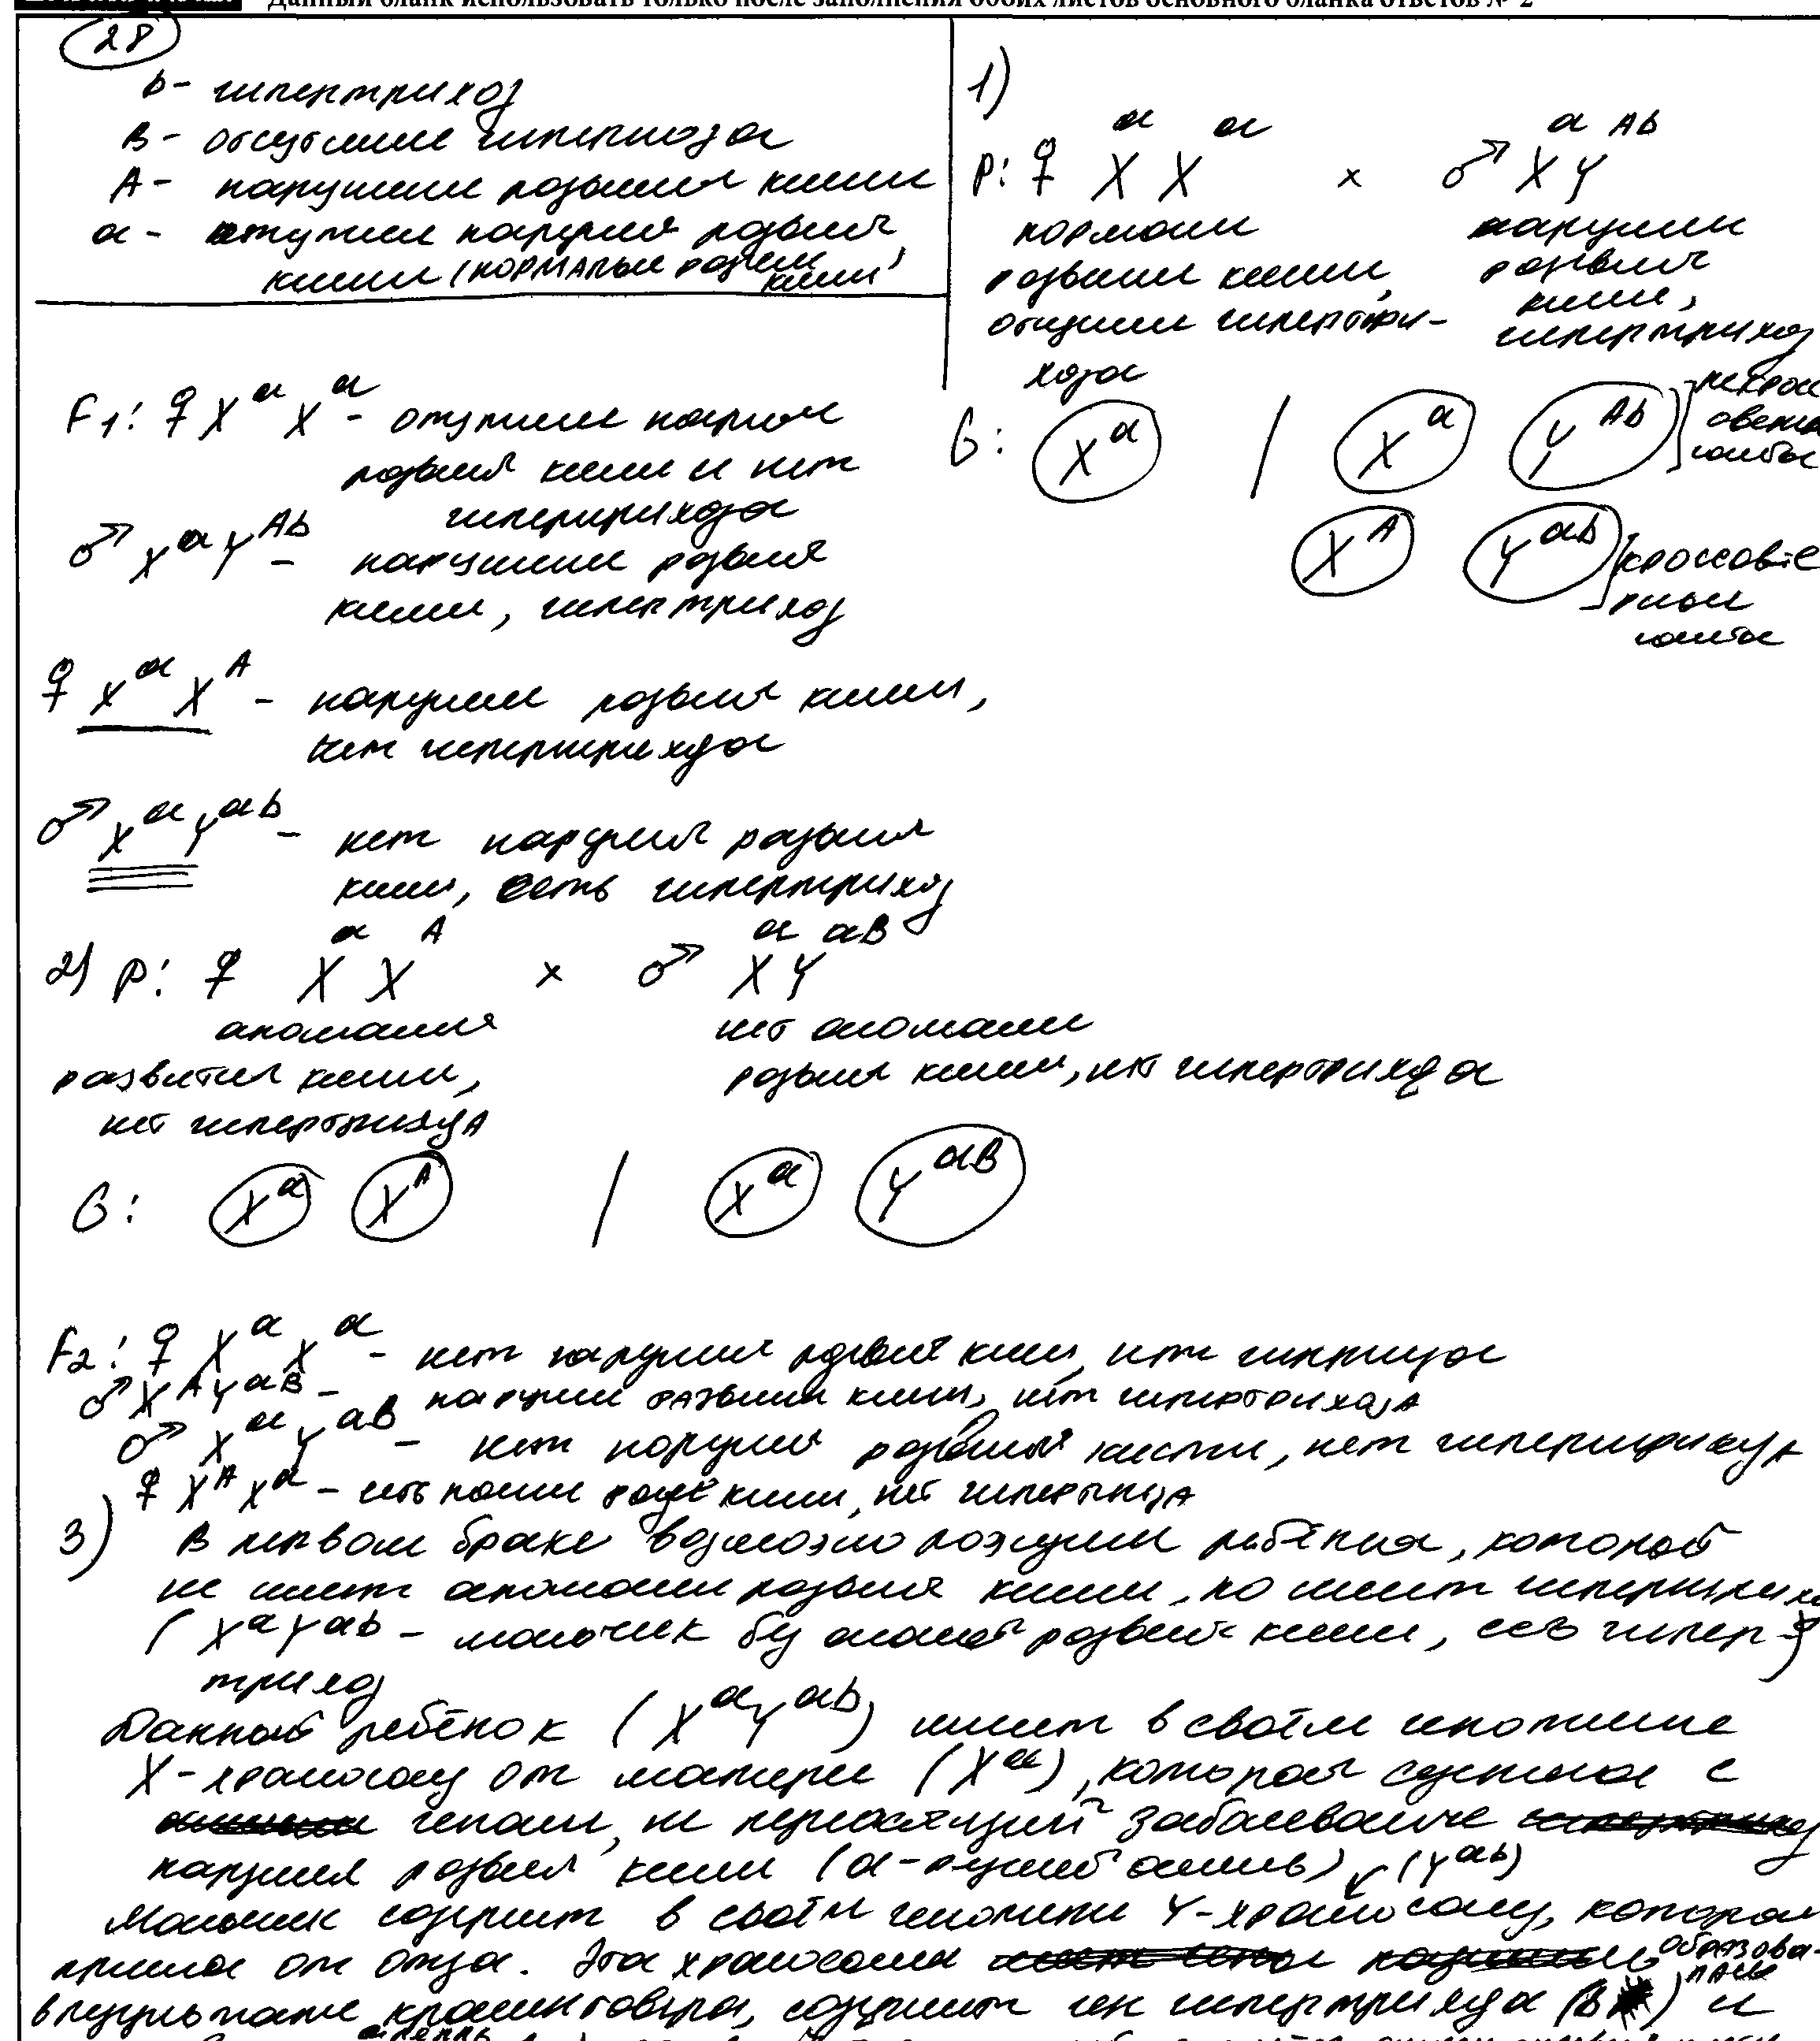 Данный бланк использовать только после заполнения обоих листов основного бланка ответов № 2
28
b - гипертрихоз
B - отсутствие гипертриоза
A - нарушение развития кисти
a - нарушения развития
кисти (нормальн развити кисти)
1)
P: ♀ X^a X^a × ♂ X^a Y^Ab
нормальн
развитие кисти,
отсутствие гипертри-
хоза
нарушение
развития
кисти,
гипертрихоз
G: X^a / X^a Y^Ab
некроссоверные гаметы
X^A Y^ab
кроссоверные гаметы
F1: ♀ X^a X^a - отсутствие наруш
развития кисти и нет
гипертрихоза
♂ X^a Y^Ab - нарушение развития
кисти, гипертрихоз
♀ X^a X^A - нарушен развития кисти,
нет гипертрихоза
♂ X^a Y^ab - нет нарушения развития
кисти, есть гипертрихоз
2) P: ♀ X^a X^A × ♂ X^a Y^aB
аномалия
развития кисти,
нет гипертрихоза
нет аномалии
развития кисти, нет гипертрихоза
G: X^a X^A / X^a Y^aB
F2: ♀ X^a X^a - нет нарушения развития кисти, нет
♂ X^A Y^aB - нарушен развития кисти, нет гипертрихоза
♂ X^a Y^aB - нет нарушения развития кисти, нет гипертрихоза
♀ X^A X^a - есть развит кисти, нет гипертрихоза
3) В первом браке возможно рождение ребёнка, который
не имеет аномалии развития кисти, но имеет гипертрихоз
(X^a Y^ab - мальчик без аномалий развития кисти, есть гипер-
трихоз)
Данный ребёнок (X^a Y^ab) имеет в своём генотипе
X-хромосому от матери (X^a), которая сцеплена с
геном, не переносящий заболевание
нарушения развития кисти (a - рецессивный аллель) (Y^ab)
Мальчик содержит в своём генотипе Y-хромосому, которая
пришла от отца. Эта хромосома образова-
лась
в результате кроссинговера, содержит ген гипертрихоза (b) и
аллель